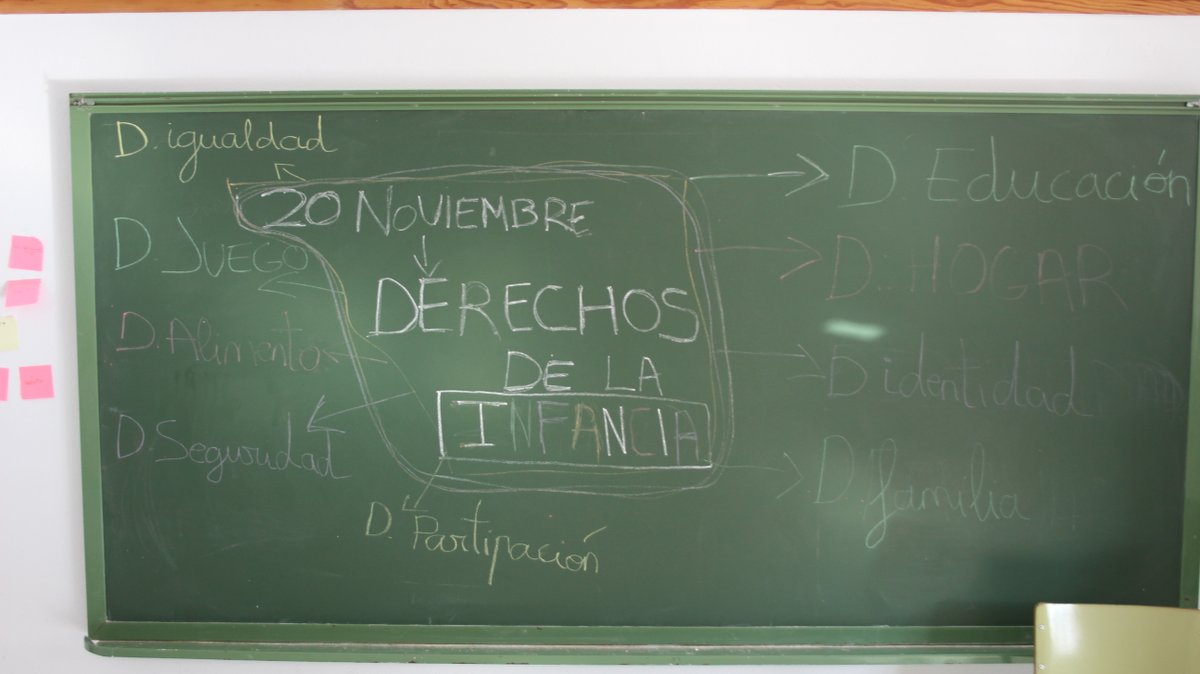 D. igualdad
D. JUEGO
D. Alimento
D. Seguridad
20 NOVIEMBRE
DERECHOS
DE LA
INFANCIA
D. Partipación
D. Educación
D. HOGAR
D identidad
D. familia